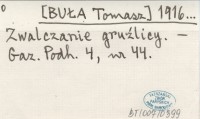 [BUŁA Tomasz] 1916...
Zwalczanie gruźlicy. —
Gaz. Podh. 4, nr 44.